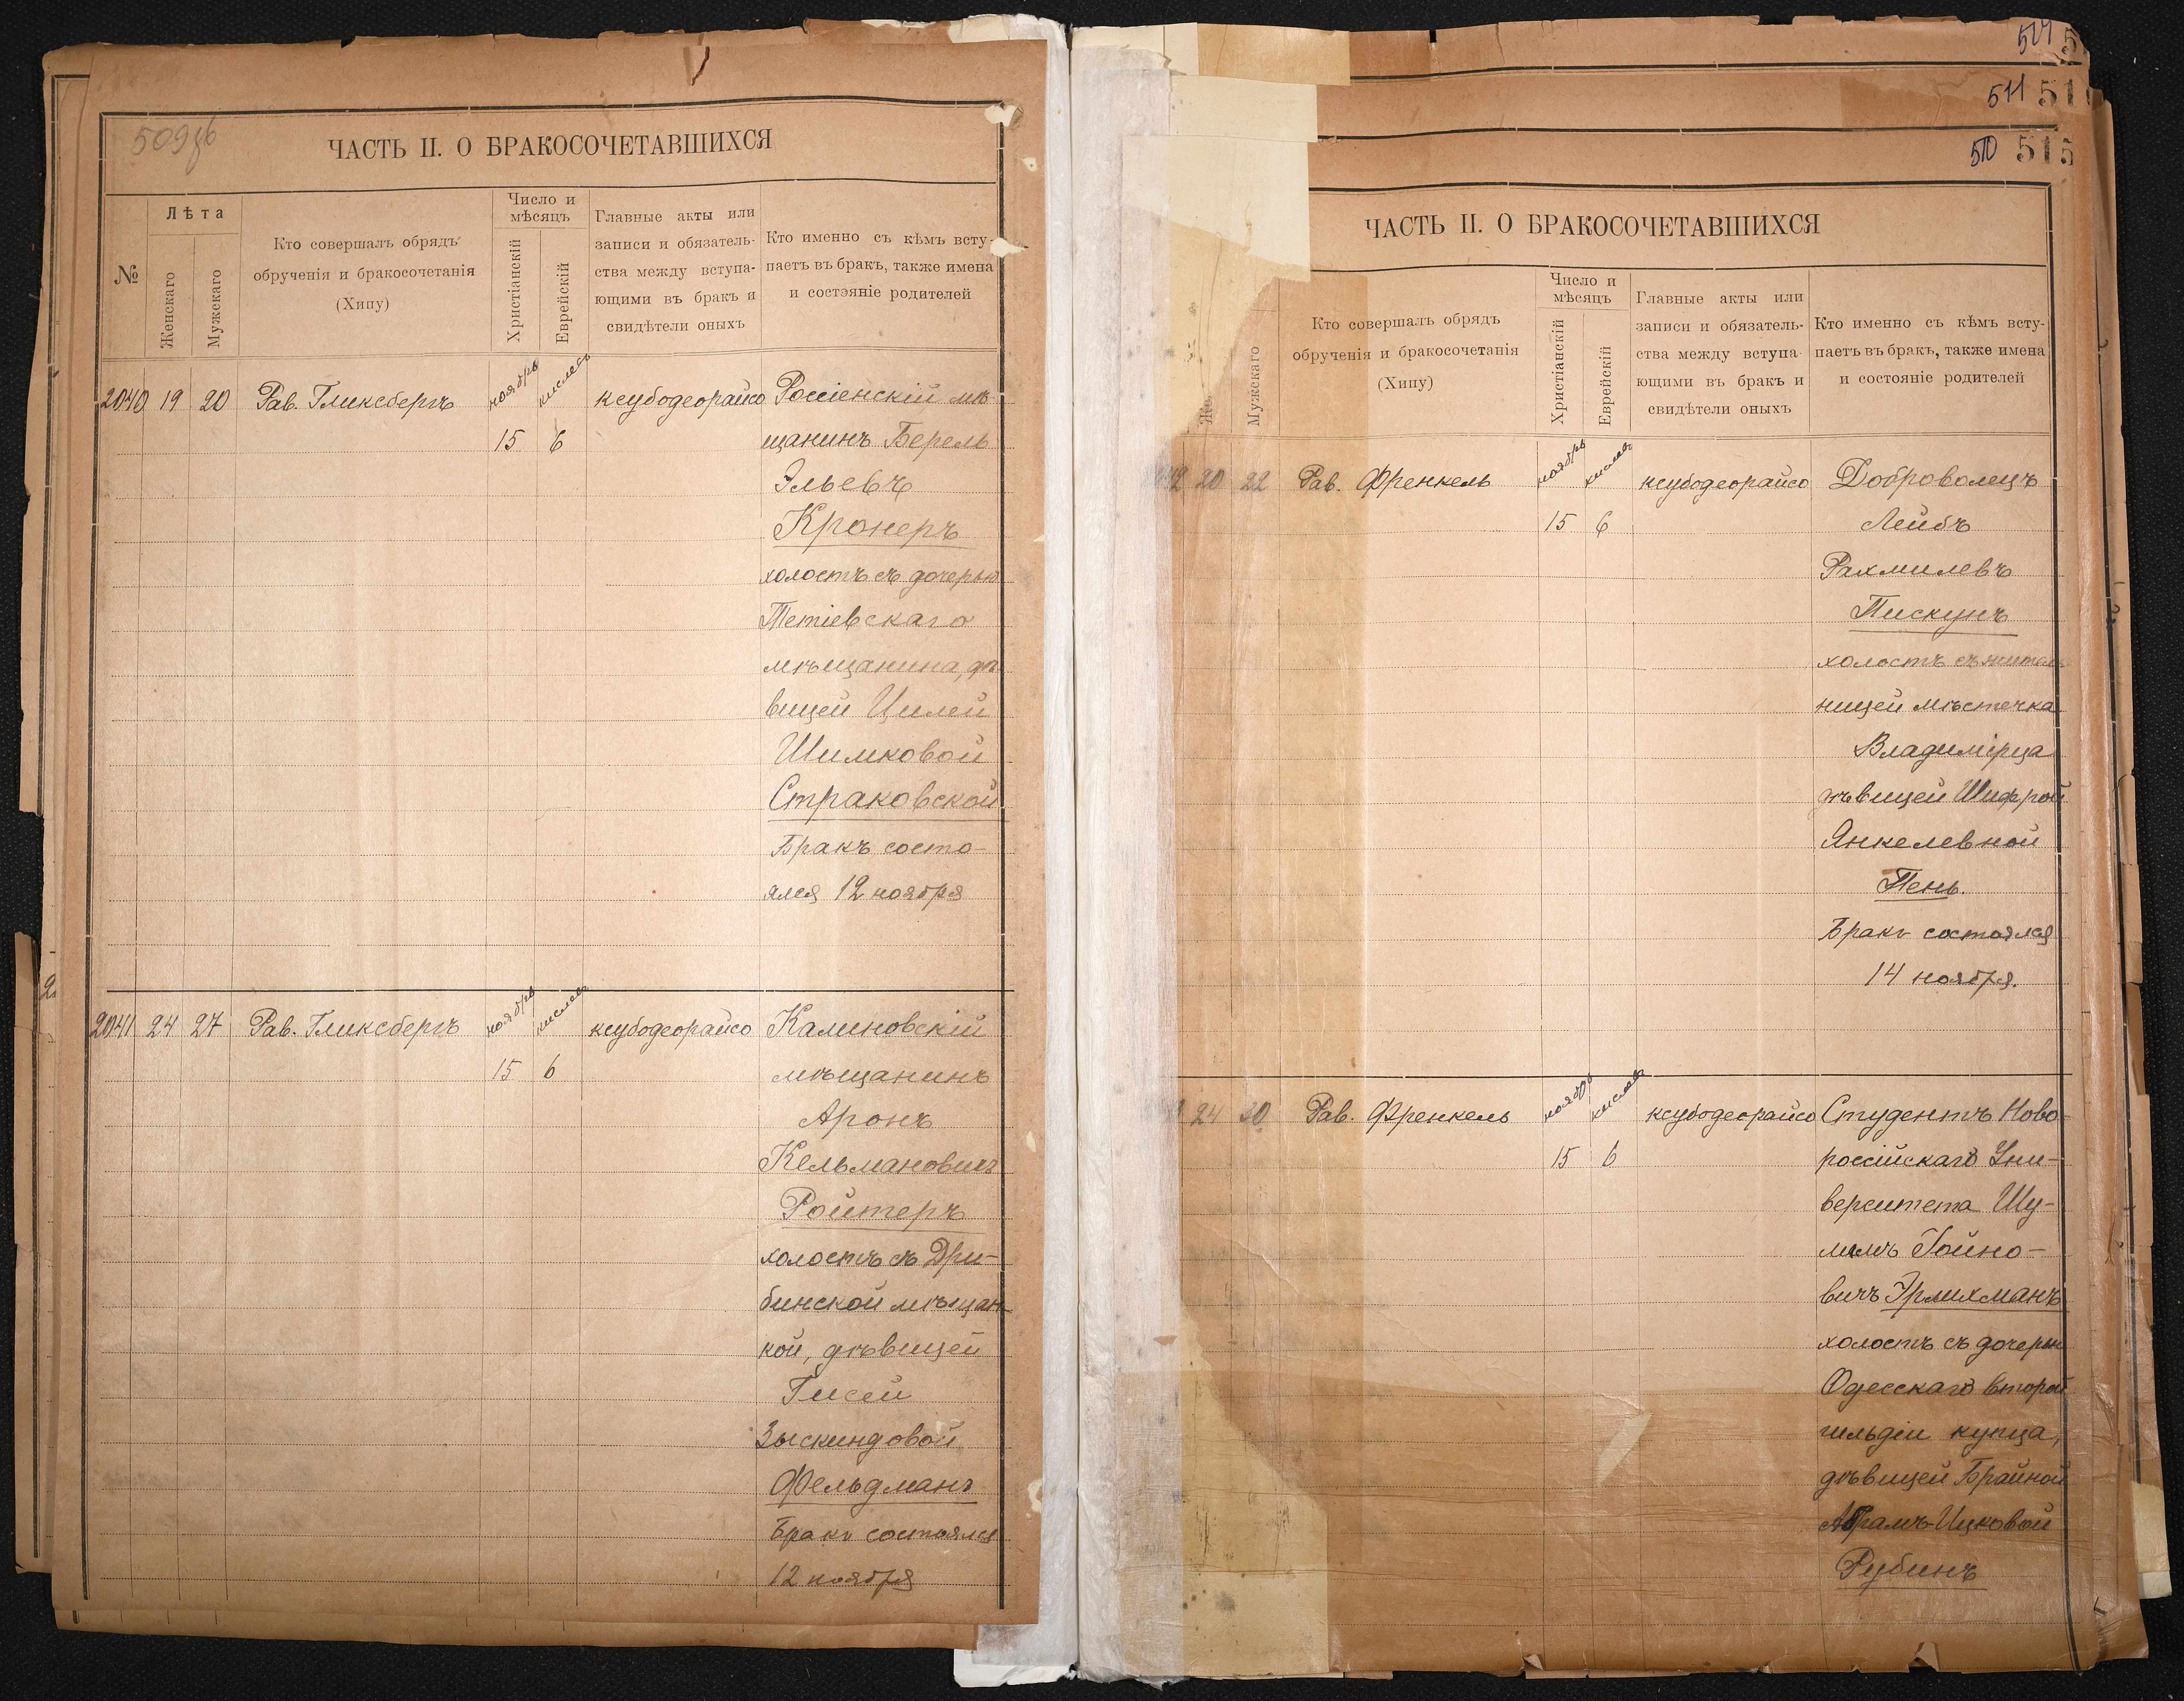 509 об
ЧАСТЬ II. О БРАКОСОЧЕТАВШИХСЯ
№
Лѣта
Женскаго
Мужскаго
Кто совершалъ обрядъ
обрученія и бракосочетанія
(Хипу)
Число и
мѣсяцъ
Христіанскій
Еврейскій
Главные акты или
записи и обязатель-
ства между вступа-
ющими въ бракъ и
свидѣтели оныхъ
Кто именно съ кѣмъ всту-
паетъ въ бракъ, также имена
и состояніе родителей
2040 19 20 Рав. Гликсбергъ ноябрь кислевъ ксубодеорайсо Россіенскій мѣ-
15 6 щанинъ Берель
Эльевъ
Кронеръ
холостъ съ дочерью
Тетіевскаго
мѣщанина, дѣ-
вицей Цилей
Шимковой
Страковской
Бракъ состо-
ялся 12 ноября
2041 24 27 Рав. Гликсбергъ ноябрь кислевъ ксубодеорайсо Калиновскій
15 6 мѣщанинъ
Аронъ
Кельмановичъ
Ройтеръ
холостъ съ Дри-
бинской мѣщан-
кой, дѣвицей
Гисей
Зыскиндовой
Фельдманъ
Бракъ состоялся
12 ноября
511
510 515
ЧАСТЬ II. О БРАКОСОЧЕТАВШИХСЯ
Мужскаго
Кто совершалъ обрядъ
обрученія и бракосочетанія
(Хипу)
Число и
мѣсяцъ
Христіанскій
Еврейскій
Главные акты или
записи и обязатель-
ства между вступа-
ющими въ бракъ и
свидѣтели оныхъ
Кто именно съ кѣмъ всту-
паетъ въ бракъ, также имена
и состояніе родителей
20 22 Рав. Френкель ноябрь кислевъ ксубодеорайсо Доброволецъ
15 6 Лейбъ
Рахмилевъ
Пискунъ
холостъ съ житель-
ницей мѣстечка
Владимірца
дѣвицей Шифрой
Янкелевной
Пень.
Бракъ состоялся
14 ноября.
24 30 Рав. Френкель ноябрь кислевъ ксубодеорайсо Студентъ Ново-
15 6 россійскаго Уни-
верситета Шу-
лимъ Гойно-
вичъ Эрлихманъ
холостъ съ дочерью
Одесскаго второй
гильдіи купца,
дѣвицей Брайной
Абрамъ-Ицковой
Рубинъ